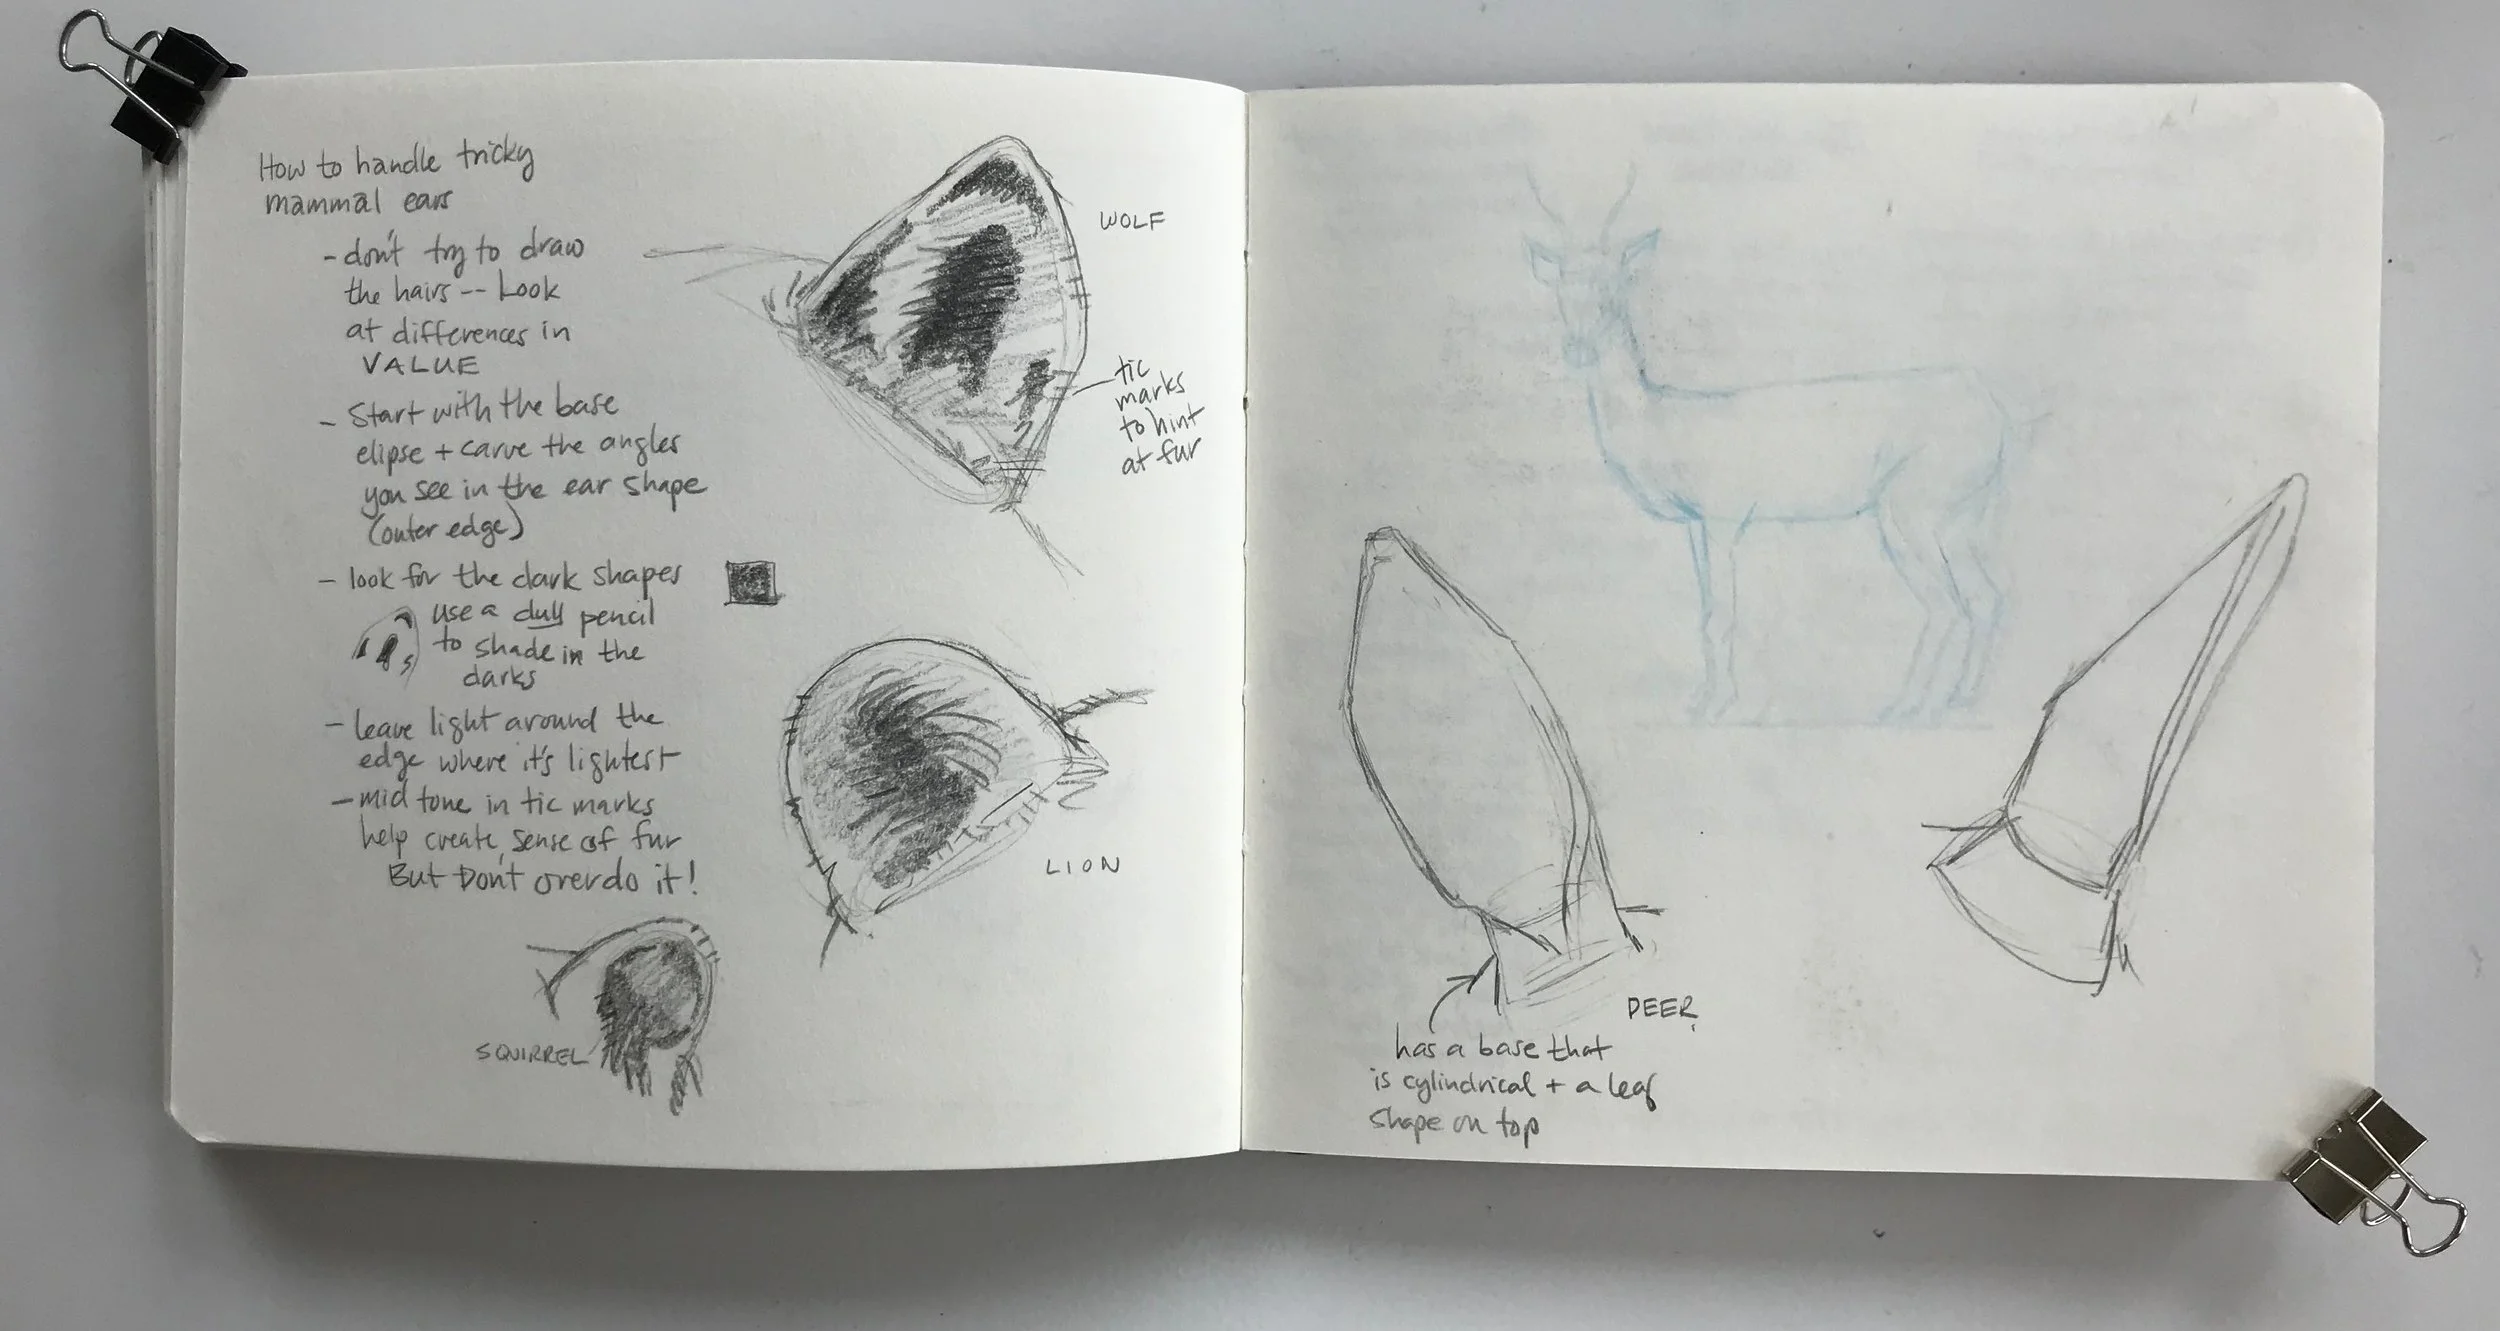 How to handle tricky
mammal ears
- don't try to draw
the hairs -- Look
at differences in
VALUE
- Start with the base
elipse + carve the angles
you see in the ear shape
(outer edge)
- look for the dark shapes
use a dull pencil
to shade in the
darks
- leave light around the
edge where it's lightest
- mid tone in tic marks
help create sense of fur
But Don't overdo it!
SQUIRREL
WOLF
tic
marks
to hint
at fur
LION
DEER
has a base that
is cylindrical + a leaf
shape on top